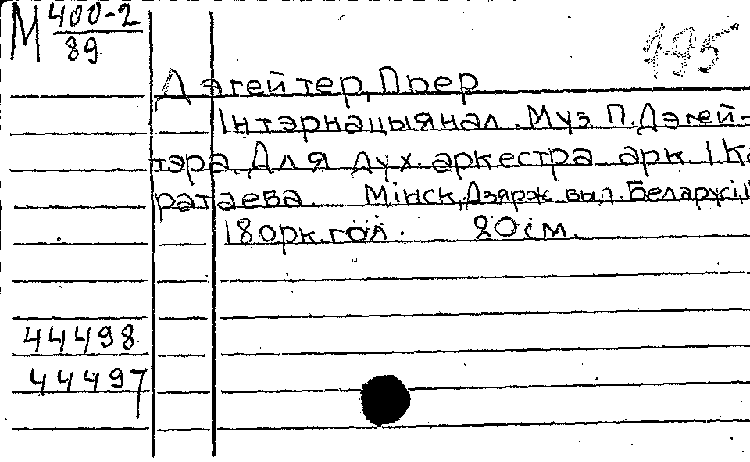 М 400-2
89
195
Дэгейтер, Пьер
Інтэрнацыянал. Муз. П. Дэгей-
тэра. Для дух. аркестра арк. І. Ка
ратаева. Мінск, Дзярж. выд. Беларусі,
18 орк. гол. 20 см.
44498
44497